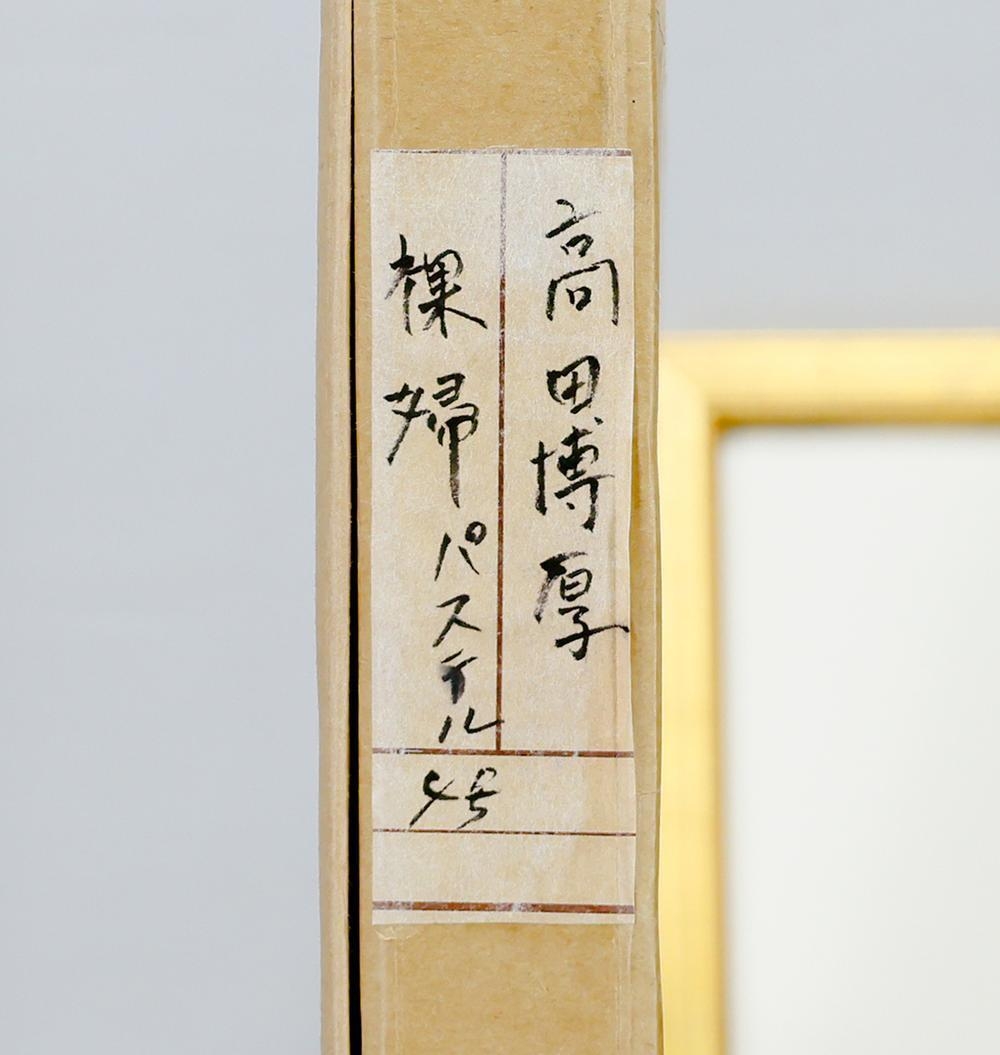 高田博厚
裸婦パステル
4号